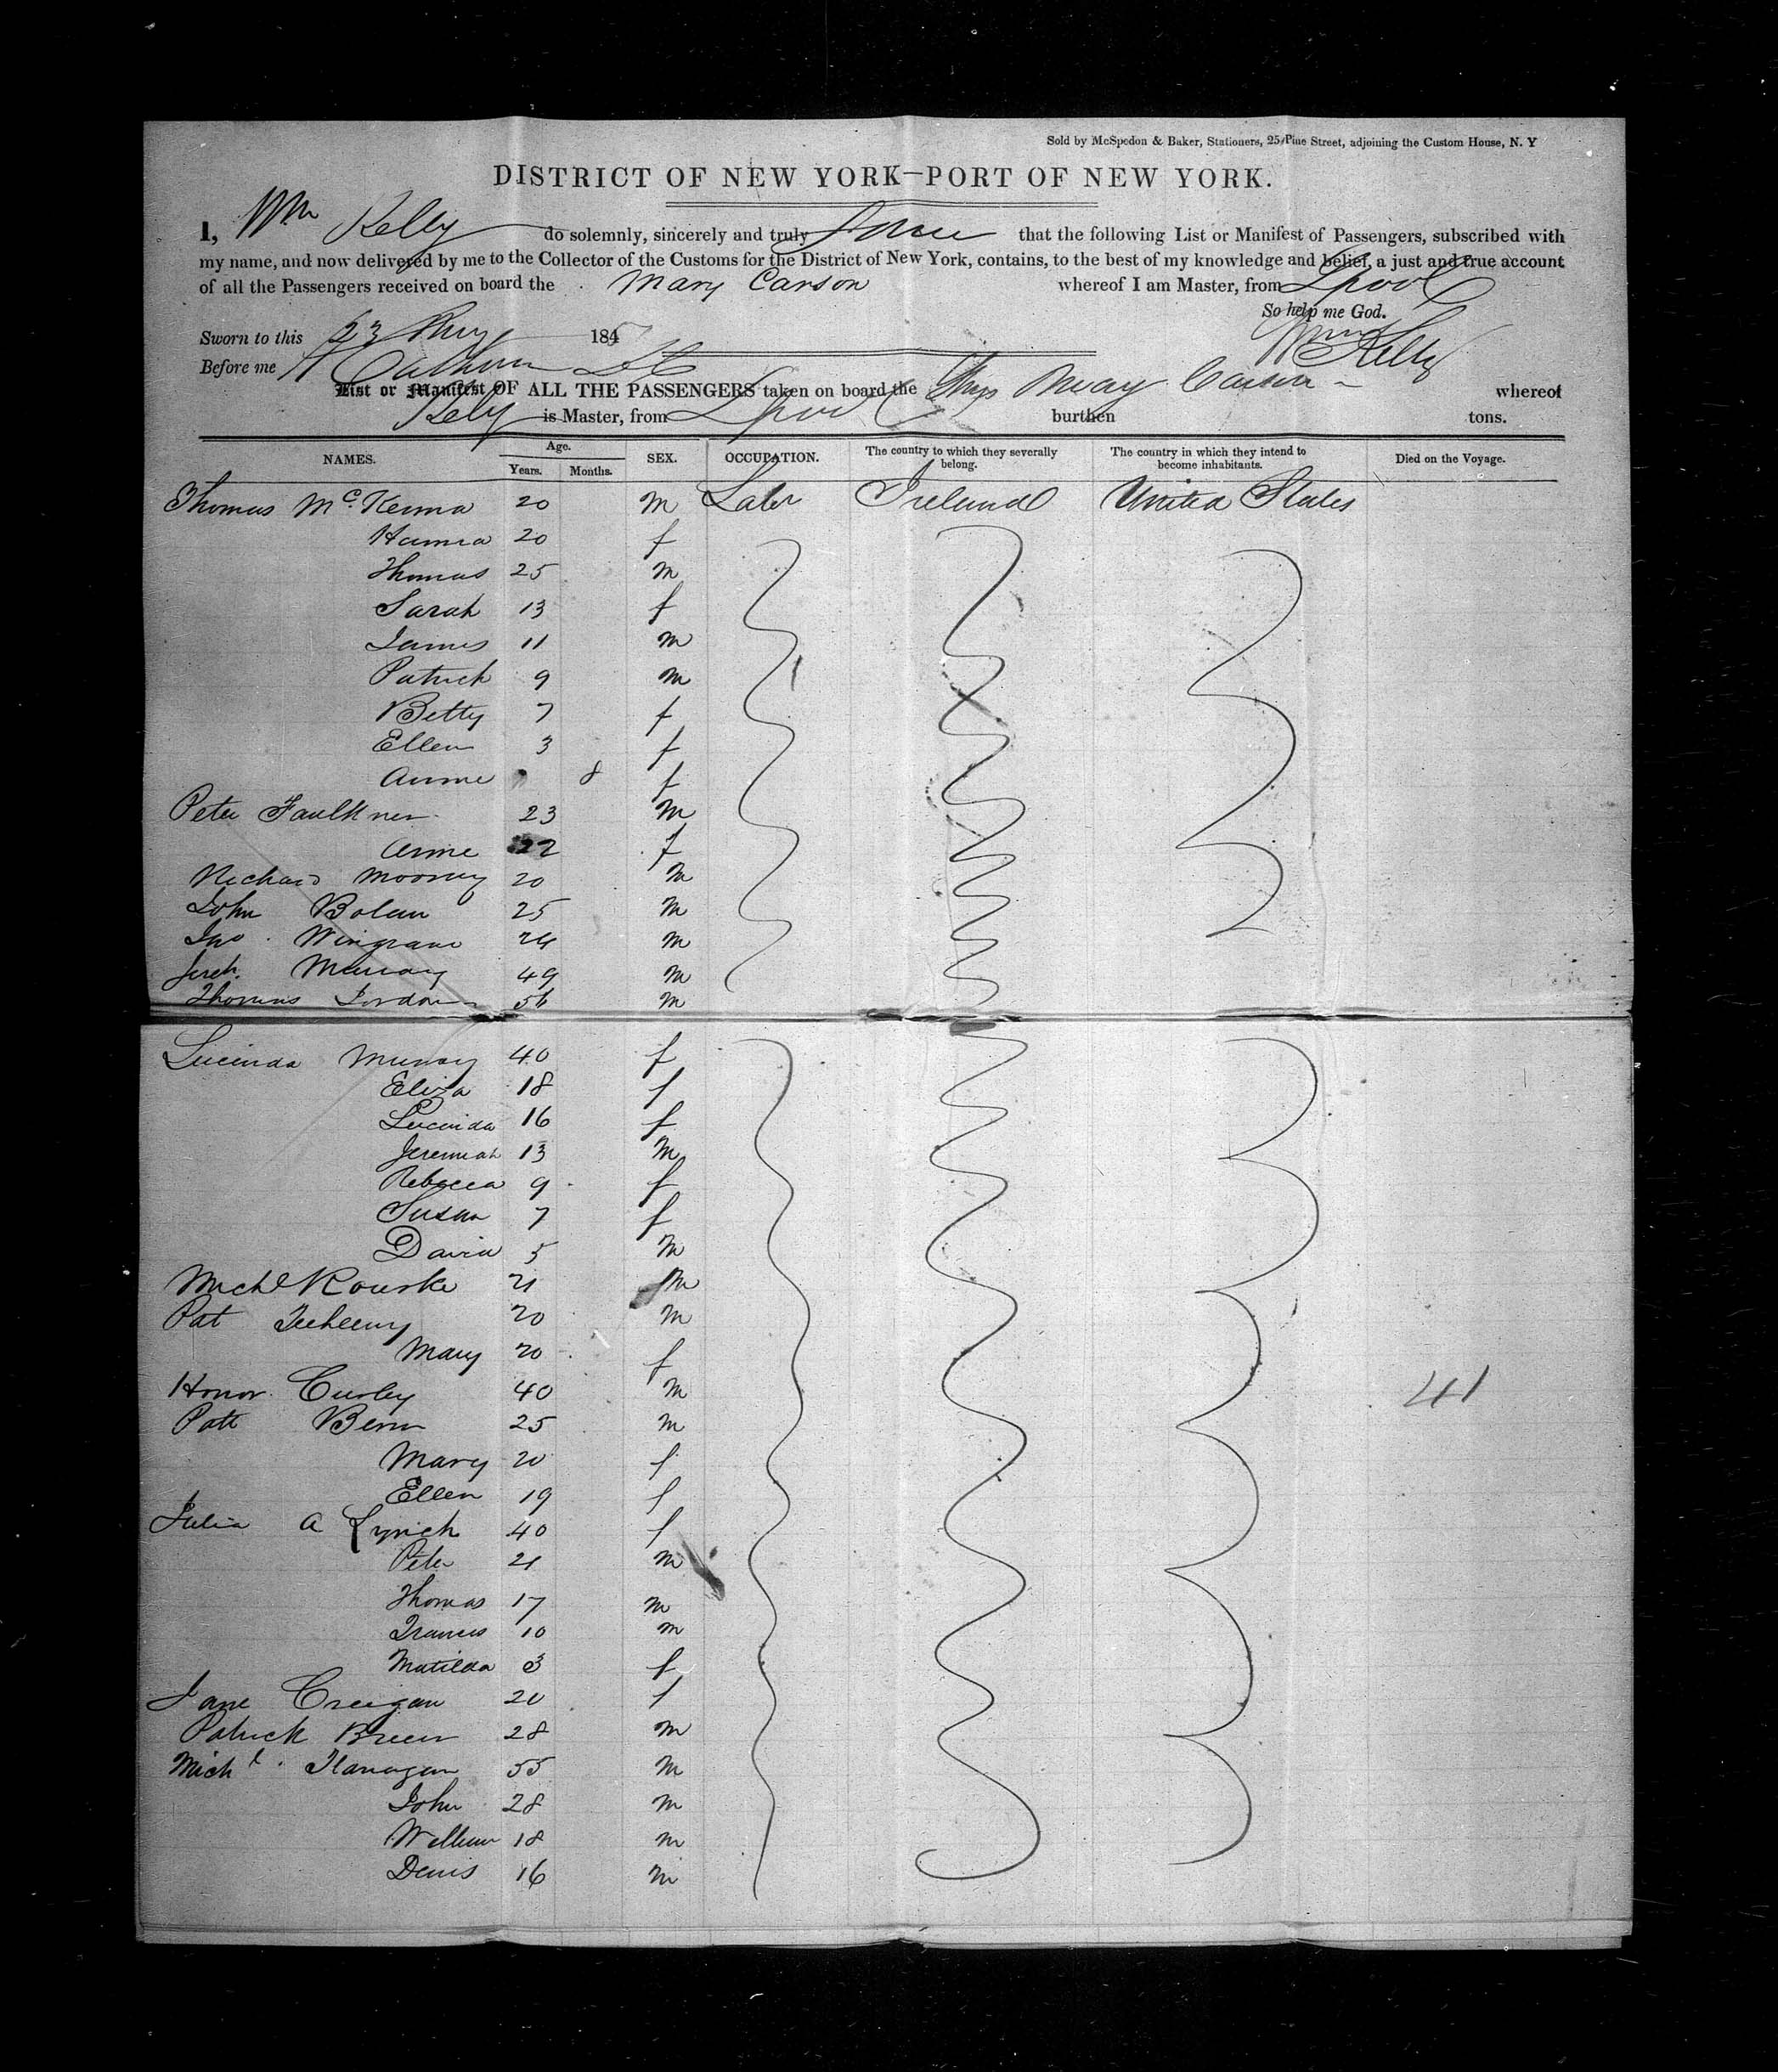 Sold by McSpedon & Baker, Stationers, 25 Pine Street, adjoining the Custom House, N. Y
DISTRICT OF NEW YORK—PORT OF NEW YORK.
I, Wm Kelly do solemnly, sincerely and truly that the following List or Manifest of Passengers, subscribed with
my name, and now delivered by me to the Collector of the Customs for the District of New York, contains, to the best of my knowledge and belief, a just and true account
of all the Passengers received on board the Mary Carson whereof I am Master, from Lpool
So help me God.
Sworn to this 23 185 Wm Kelly
Before me
List or Manifest OF ALL THE PASSENGERS taken on board the Ship Mary Carson whereof
Kelly is Master, from Lpool burthen tons.
NAMES. Age. Years. Months. SEX. OCCUPATION. The country to which they severally belong. The country in which they intend to become inhabitants. Died on the Voyage.
Thomas McKenna 20 m Labr Ireland United States
Hanna 20 f
Thomas 25 m
Sarah 13 f
James 11 m
Patrick 9 m
Betty 7 f
Ellen 3 f
Anne 8 f
Peter Faulkner 23 m
Anne 22 f
Richard Mooney 20 m
John Bolan 25 m
Jno. Wingrave 24 m
Jereh. Murray 49 m
Thomas Jordan 56 m
Lucinda Murray 40 f
Eliza 18 f
Lucinda 16 f
Jeremiah 13 m
Rebecca 9 f
Susan 7 f
David 5 m
Michl Rourke 21 m
Pat 20 m
Mary 20 f
Honor Curley 40 m
Patt 25 m
Mary 20 f
Ellen 19 f
Julia A Lynch 40 f
Peter 21 m
Thomas 17 m
Frances 10 m
Matilda 3 f
Jane Creegan 20 f
Patrick Breen 28 m
Michl. Flanagan 55 m
John 28 m
William 18 m
Denis 16 m
41